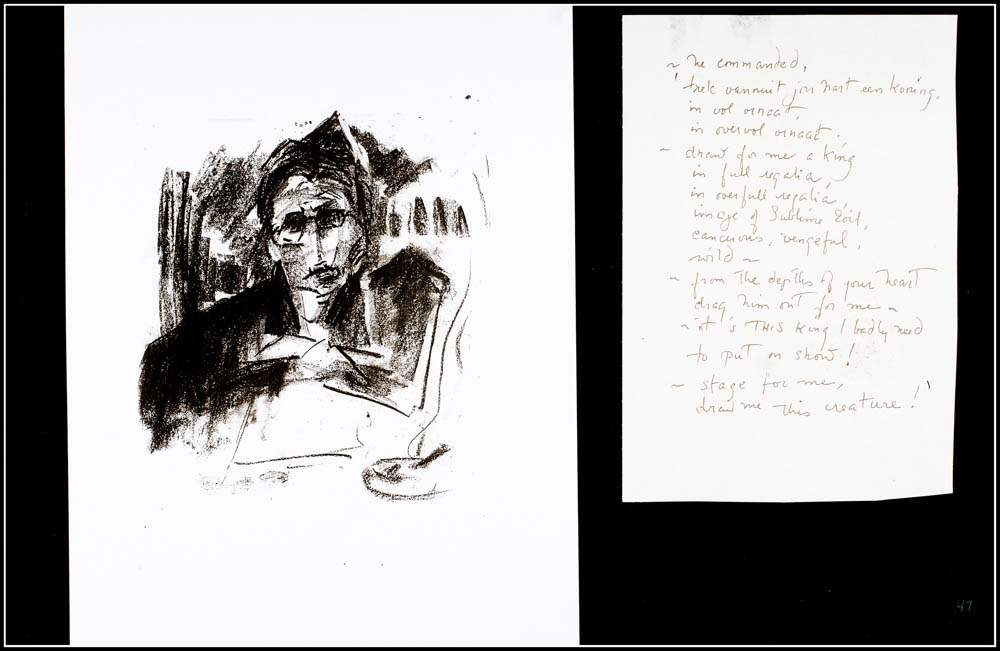 ~ he commanded,
'trek vanuit jou hart een koning,
in vol ornaat,
in overvol ornaat ;,
~ draw for me a king
in full regalia,
in overfull regalia,
image of Sublime Evil,
cancerous, vengeful,
wild ~
~ from the depths of your heart
drag him out for me ~
~ it's THIS king I badly need
to put on show!
~ stage for me,
draw me this creature!'
47